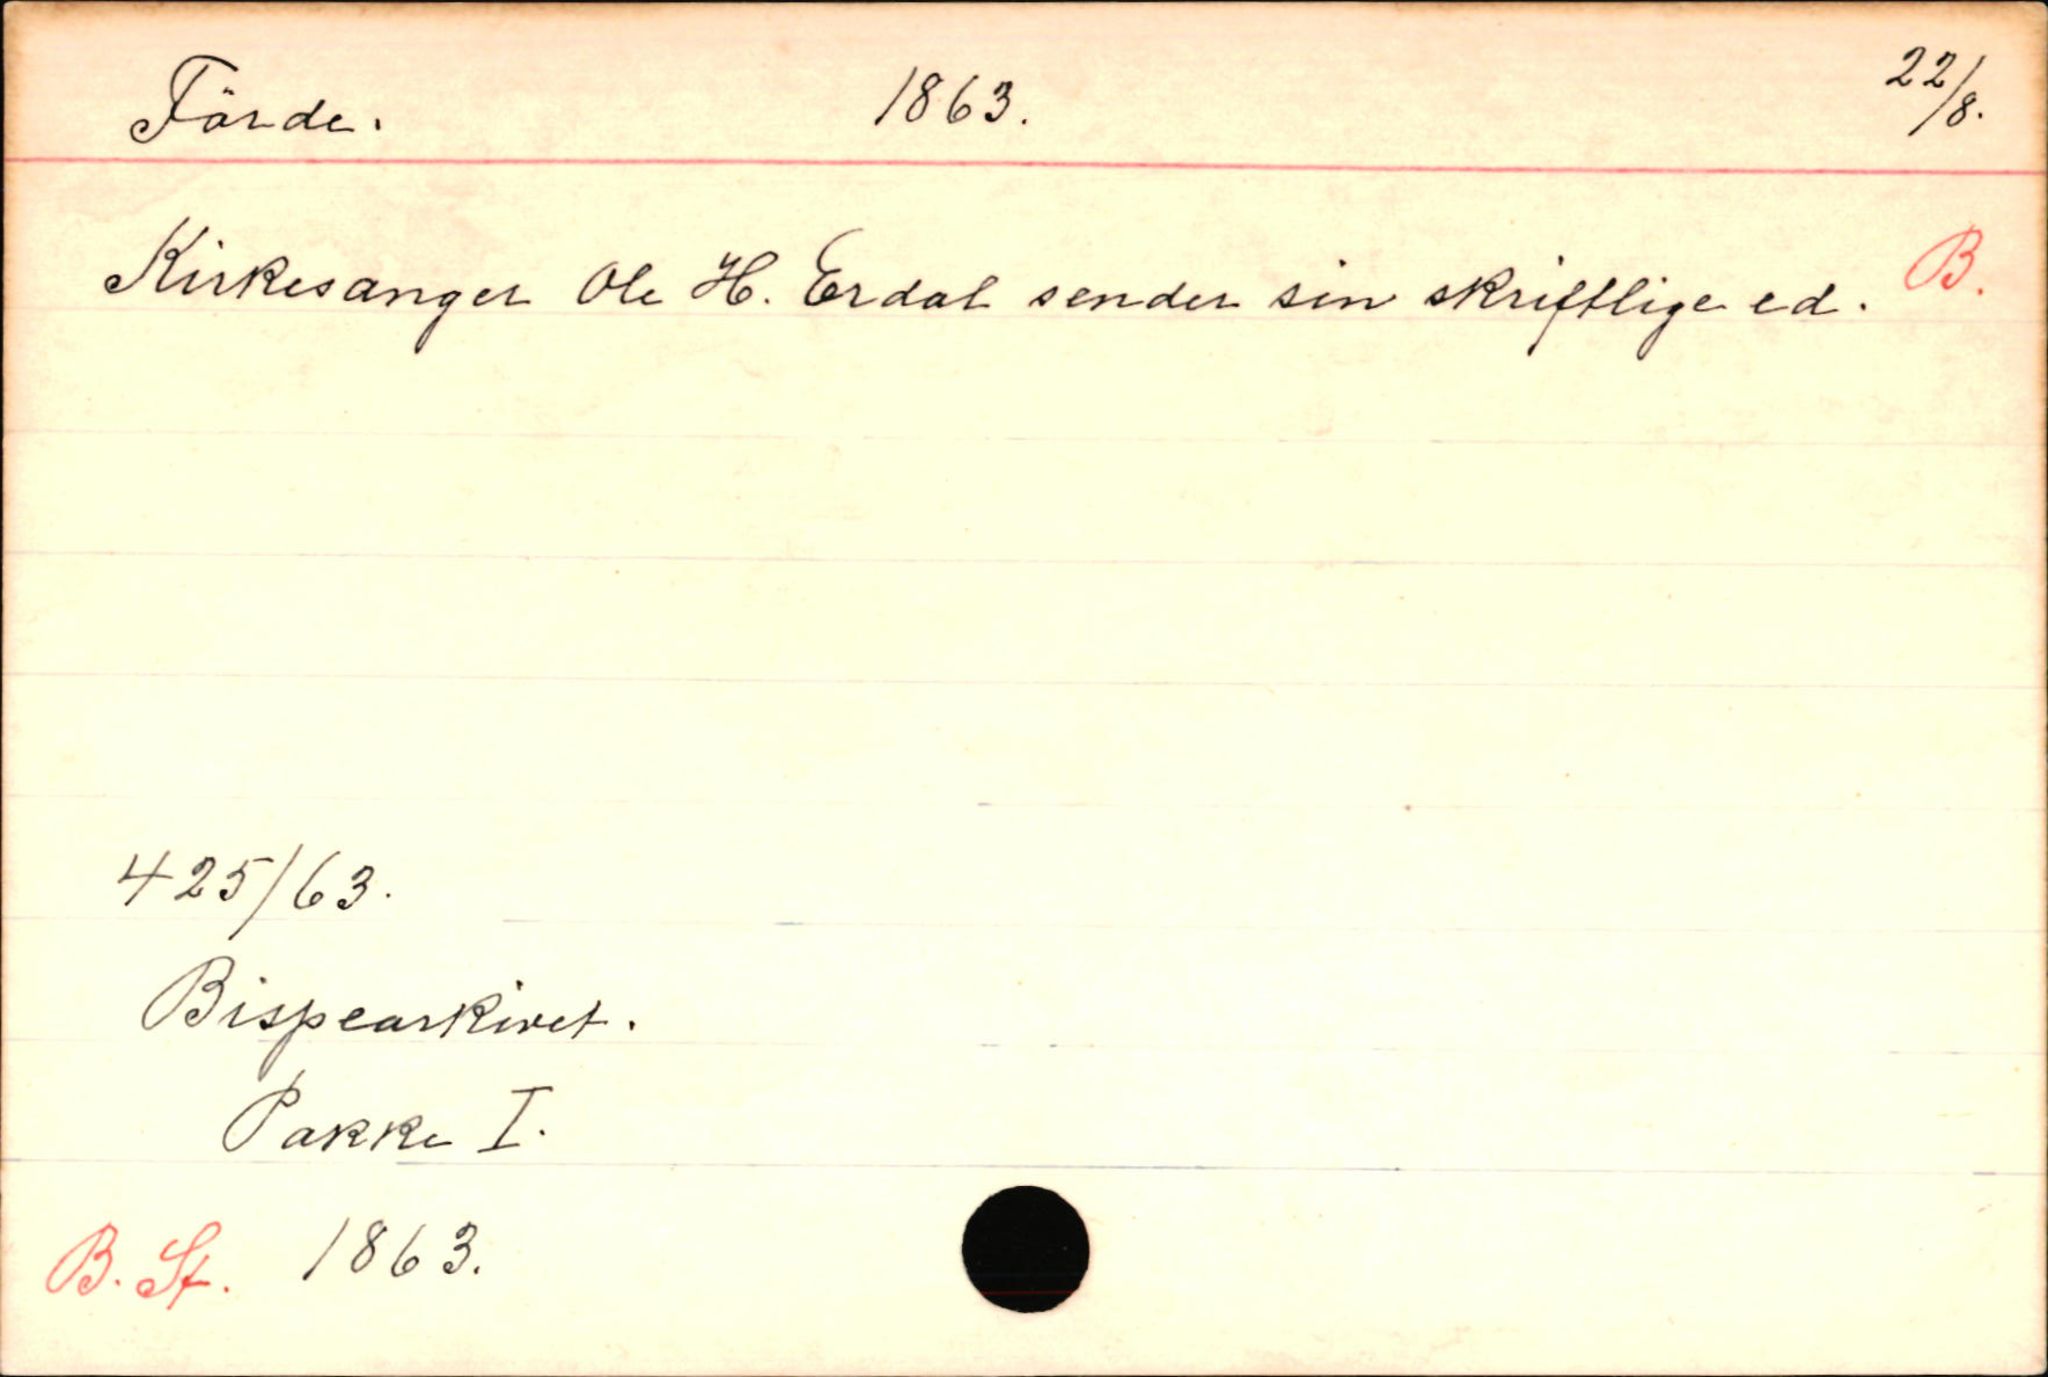 Förde. 1863. 22/8.
Kirkesanger Ole H. Erdal sender sin skriftlige ed. B.
425/63.
Bispearkivet.
Pakke I.
B. St. 1863.